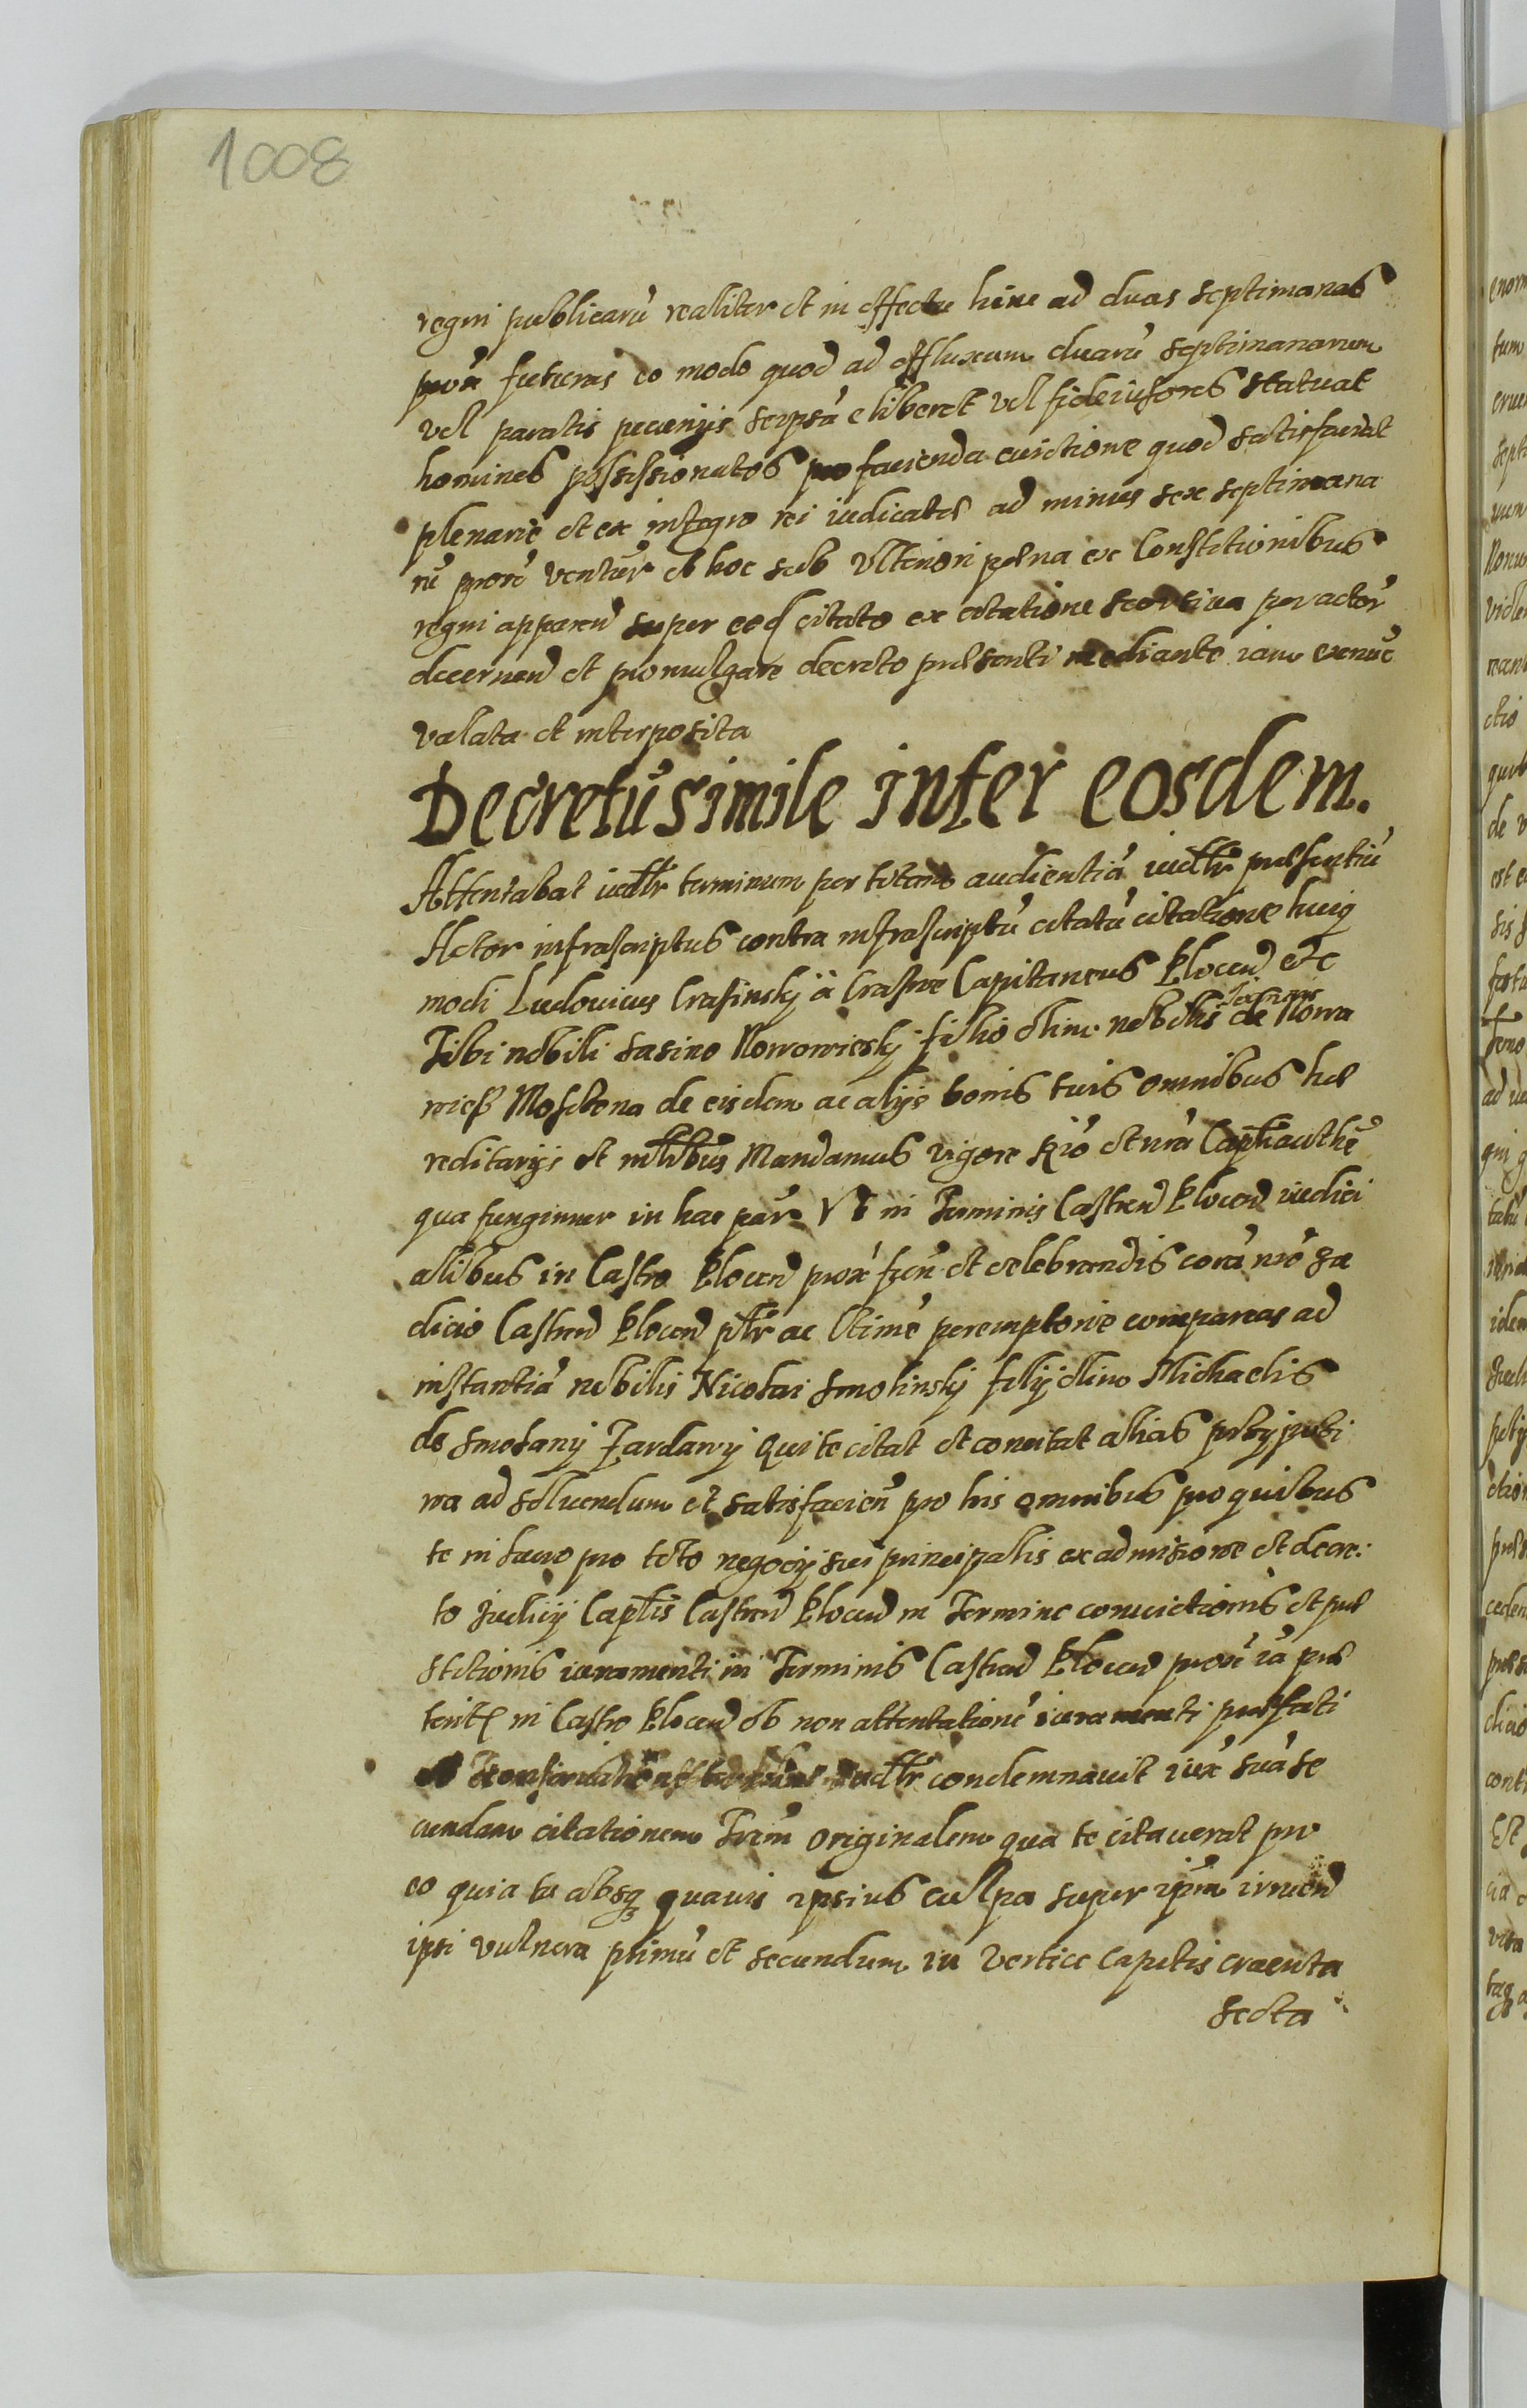 1008
regni publicarū realiter et in effectu hinc ad duas septimanas
prox futuras eo modo quod ad effluxum duarū septimanarum
vel paratis pecunijs seipsū eliberet vel fideiussores statuat
homines possessionatos pro facienda euictione quod satisfaciat
plenarie et ex integro rei iudicatae ad minus sex septimana
rū prox ventur et hoc sub vlteriori poena ex Constitutionibus
regni apparen super eod citato ex citatione per actor
decernen et promulgare decreto praesenti mediante iam exnūc
valata et interposita
Decretū simile inter eosdem.
Attentabat iudllr terminum per totam audientiā iudllr praesentiū
Actor infrascriptus contra infrascriptū citatū citatione huiq
modi Ludouicus Crasinsky à Crasne Capitaneus Plocen etc
Tibi nobili Sasino Nowowiesky filio olim nobilis Joannis de Nowa
wiess Mosctona de eisdem ac alijs bonis tuis omnibus hae
reditarijs et mllibus Mandamus vigore Rio et nrā Capthauthē
qua fungimur in hac par Vt in Terminis Castren Plocen iudici
alibus in Castro Plocen prox fun et celebrandis corā nrō Ju
dicio Castren Plocen pllr ac vltimē peremptorie compareas ad
instantiā nobilis Nicolai Smolinsky filij olim Michaelis
de Smolany Zardawy Qui te citat et conuitat alias przypozi
wa ad soluendum et satisfacien pro his omnibus pro quibus
te in lucro pro toto negocij sui principalis ex admissione et decre:
to Judicij Captlis Castren Plocen in Termino conuictionis et prae
stitionis iuramenti in Terminis Castren Plocen prox iā prae
terit in Castro Plocen ob non attentationē iuramenti praefati
iudllr condemnauit iux suā se
cundam citationem Trām originalem qua te citauerat pro
eo quia tu absq quauis ipsius culpa super ipm irruen
ipsi vulnera primū et secundum in vertice capitis cruenta
secta